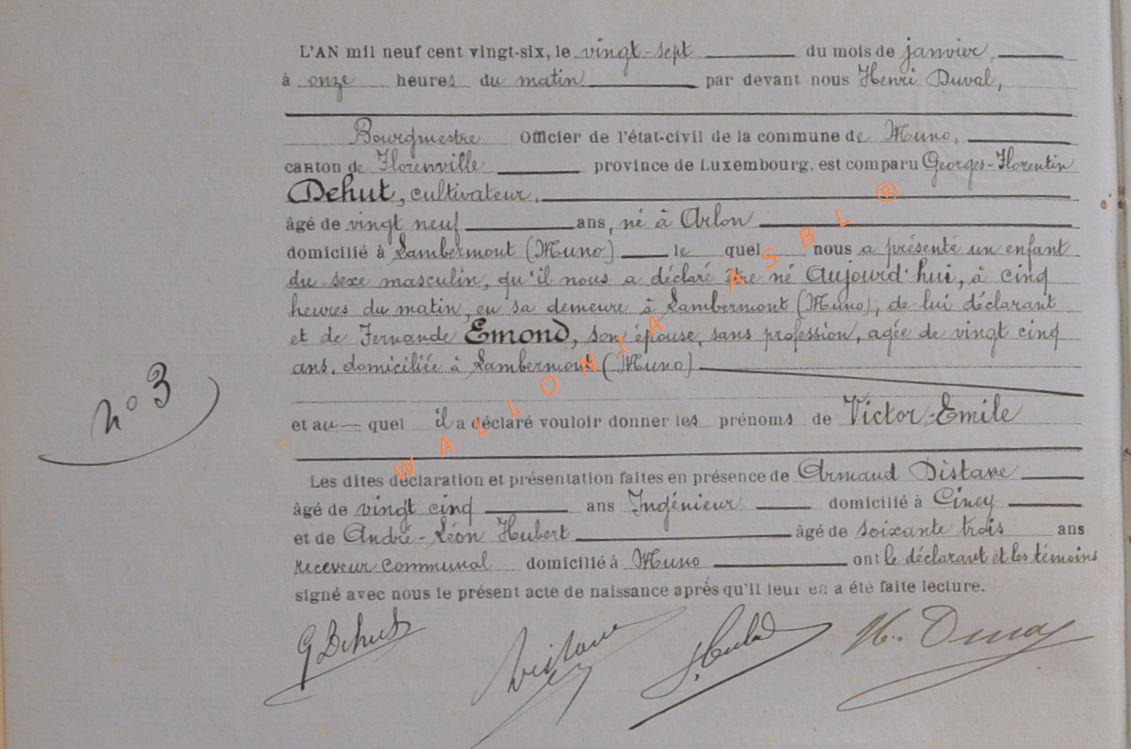 L'AN mil neuf cent vingt-six, le vingt-sept du mois de janvier,
à onze heures du matin par devant nous Henri Duval,
Bourgmestre Officier de l'état-civil de la commune de Muno,
canton de Florenville province de Luxembourg, est comparu Georges-Florentin
Dehut, cultivateur.
âgé de vingt neuf ans, né à Arlon
domicilié à Lambermont (Muno) le quel nous a présenté un enfant
du sexe masculin, qu'il nous a déclaré être né aujourd'hui, à cinq
heures du matin, en sa demeure à Lambermont (Muno), de lui déclarant
et de Fernande Emond, son épouse, sans profession, agée de vingt cinq
ans, domiciliée à Lambermont (Muno)
n° 3
et au quel il a déclaré vouloir donner les prénoms de Victor-Emile
Les dites déclaration et présentation faites en présence de Armand Distave
âgé de vingt cinq ans Ingénieur domicilié à Ciney
et de André-Léon Hubert âgé de soixante trois ans
receveur communal domicilié à Muno ont le déclarant et les témoins
signé avec nous le présent acte de naissance après qu'il leur en a été faite lecture.
G Dehut Distave Hubert H. Duval
WALLONIA ASBL ®